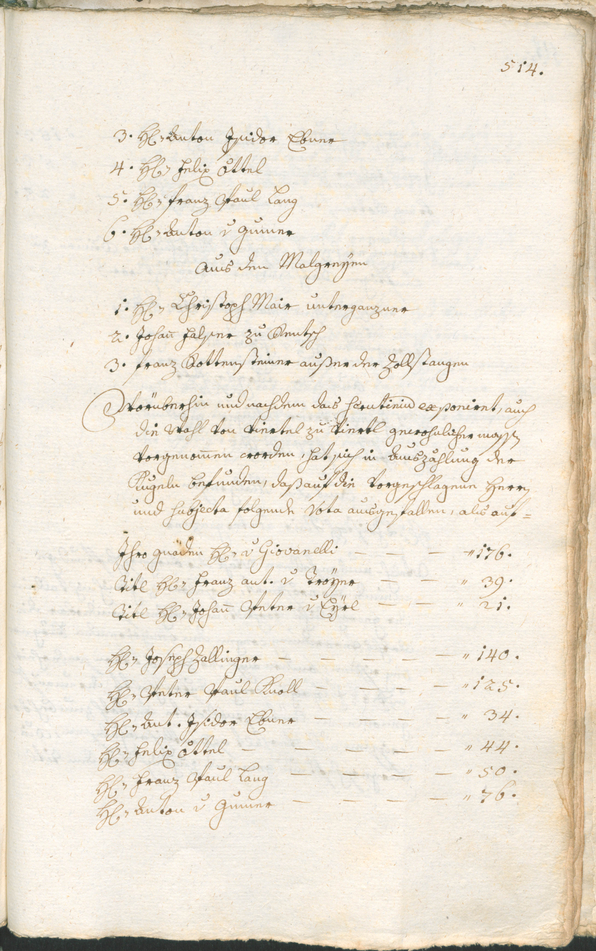 514.
3. H: Anton Isidor Ebner
4. H: Felix Öttel
5. H: Franz Paul Lang
6. H: Anton v Gumer
Aus den Malgreÿen
1. H: Christoph Mair unterganzner
2. Johañ Falser zu Rentsch
3. Franz Rottensteiner ausser der Zollstangen
Worüberhin und nachdem das exponirt, auch
die Wahl von Viertel zu Viertl gewohnlicher massen
vorgenomen worden, hat sich in Auszählung der
Kugeln befunden, daß auf die vorgeschlagene Herrn
und Subjecta folgende Vota ausgefallen, als auf=
Ihro gnaden H: v Giovanelli — — — " 176.
Titl H: Franz ant. v Troÿer — — — " 39.
Titl H: Johañ Peter v Eÿrl — — — " 21.
H: Joseph Zallinger — — — — — " 140.
H: Peter Paul Knoll — — — — — " 125.
H: Ant. Isidor Ebner — — — — " 34.
H: Felix Öttel — — — — — " 44.
H: Franz Paul Lang — — — — — " 50.
H: Anton v Gumer — — — — — " 76.